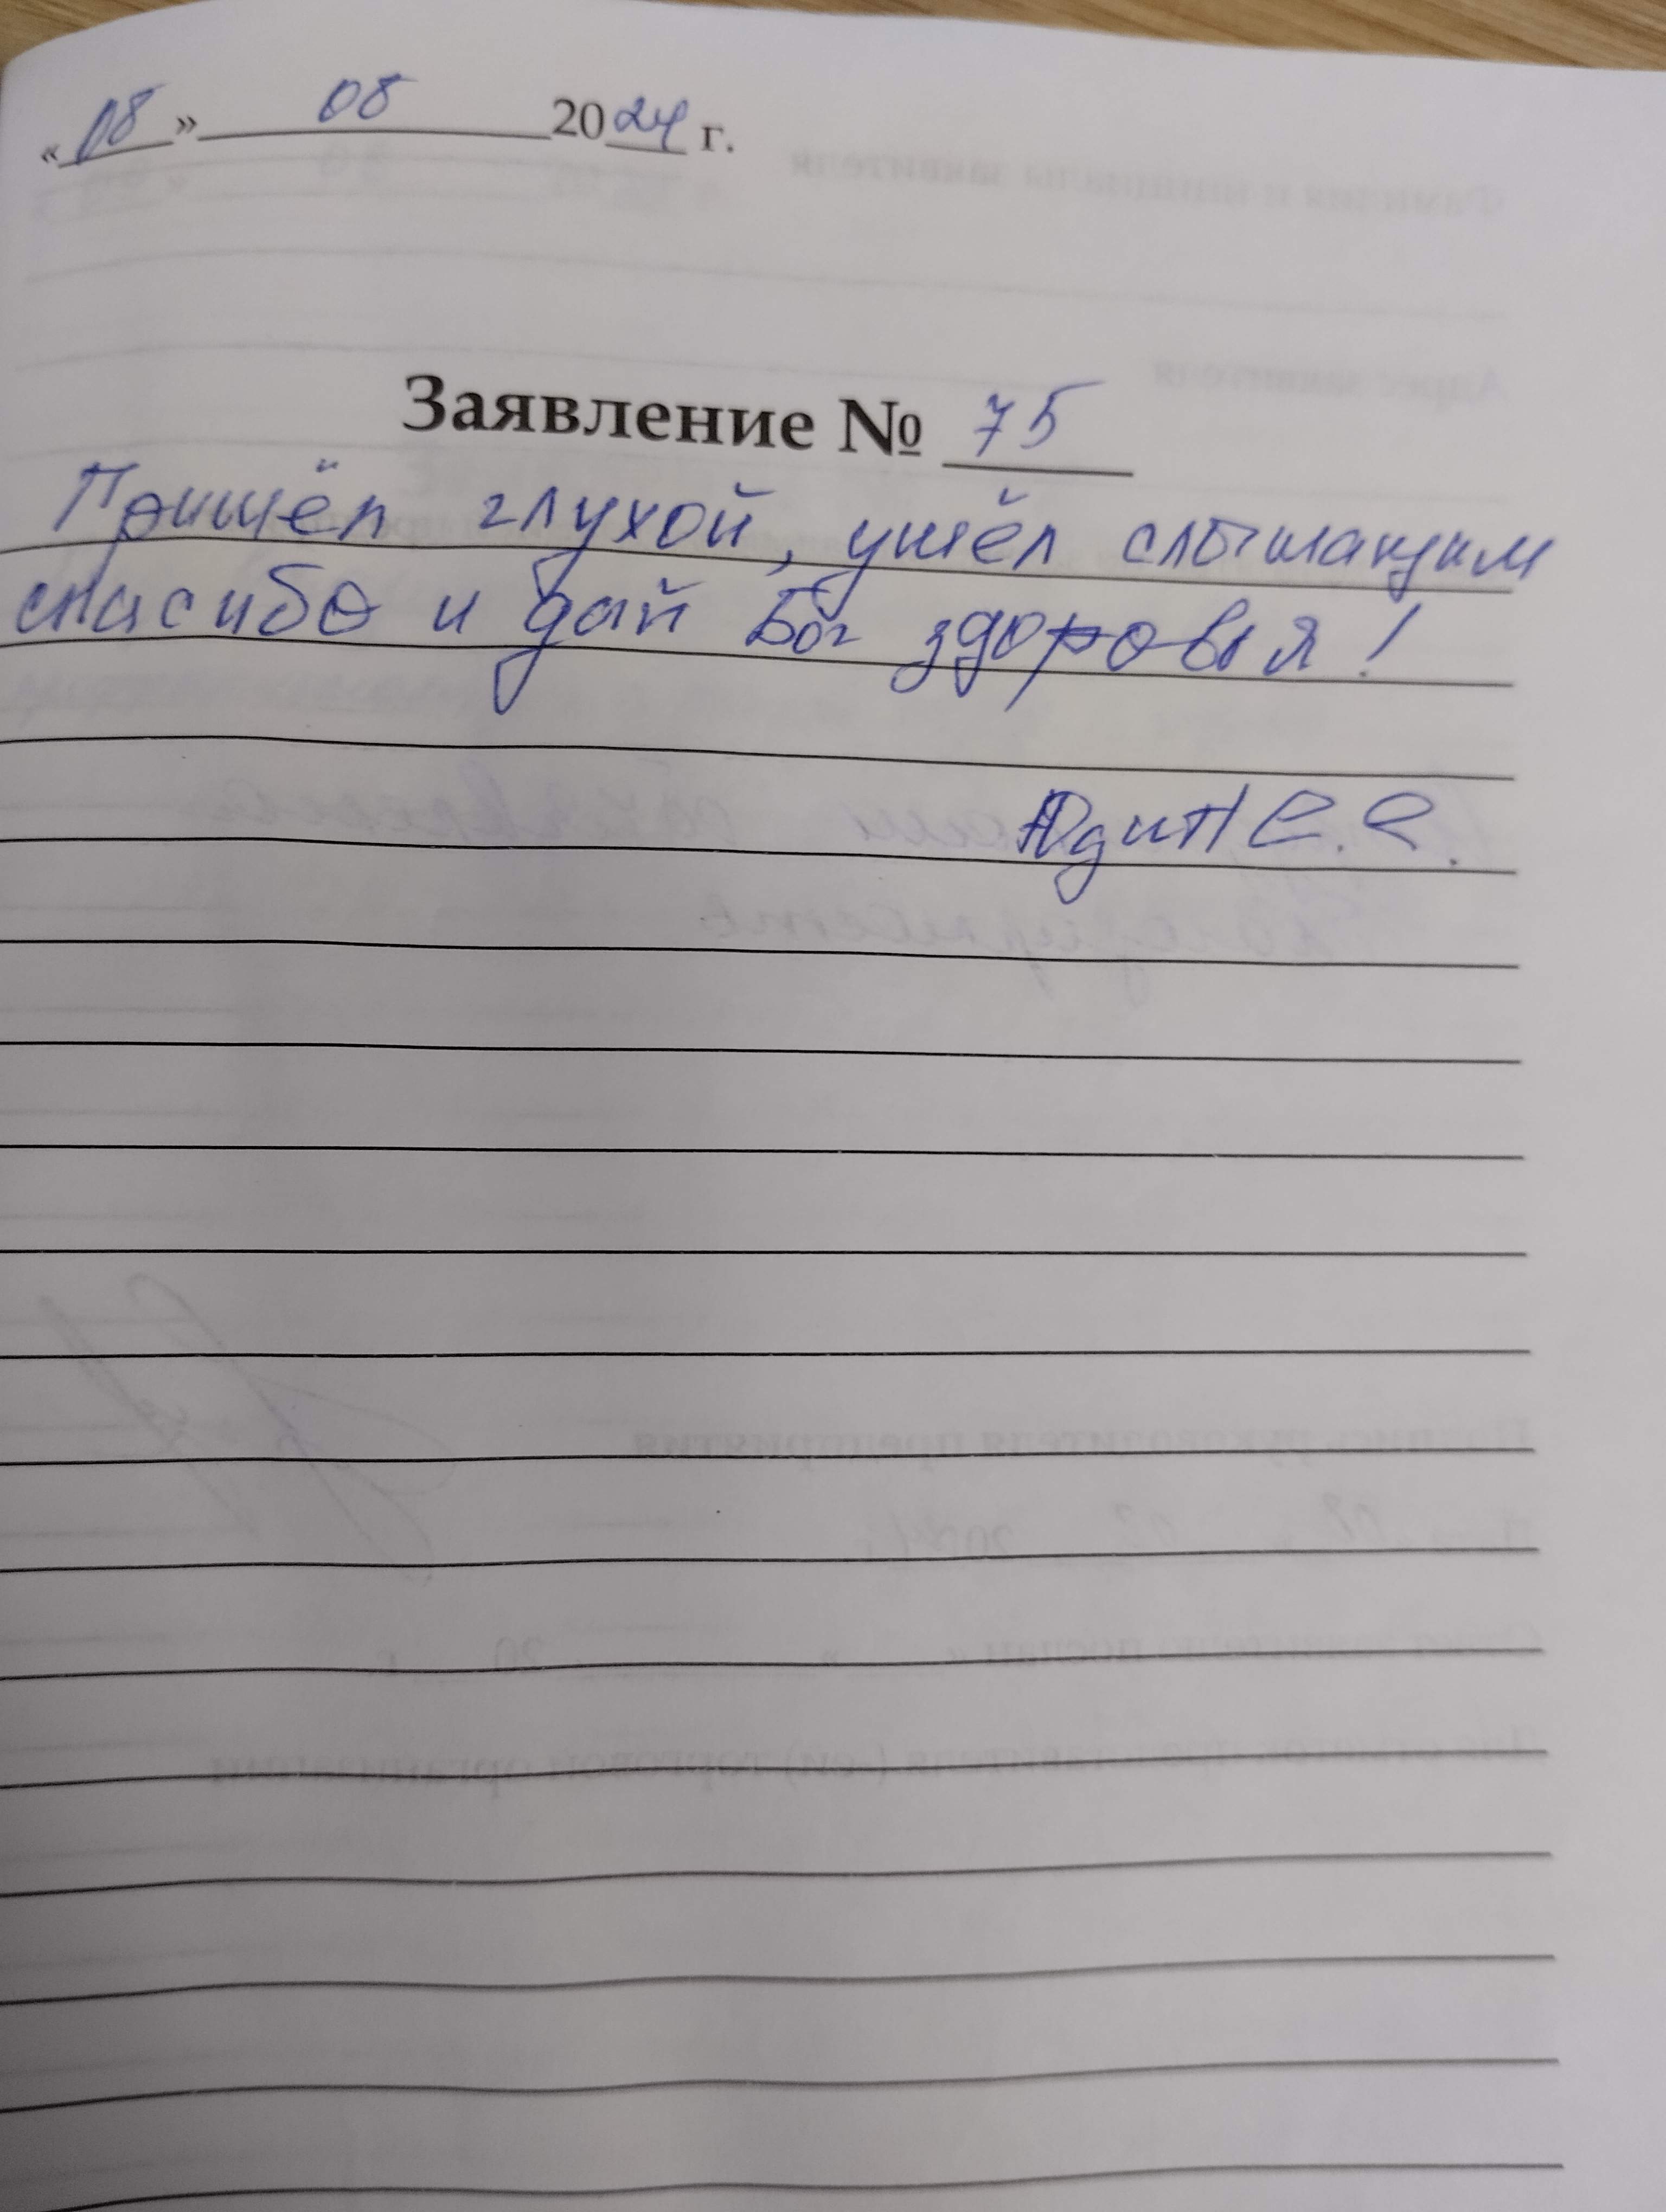 «08» 08 2024 г.
Заявление № 75
Пришёл глухой, ушёл слышащим
спасибо и дай Бог здоровья!
Е.Е.